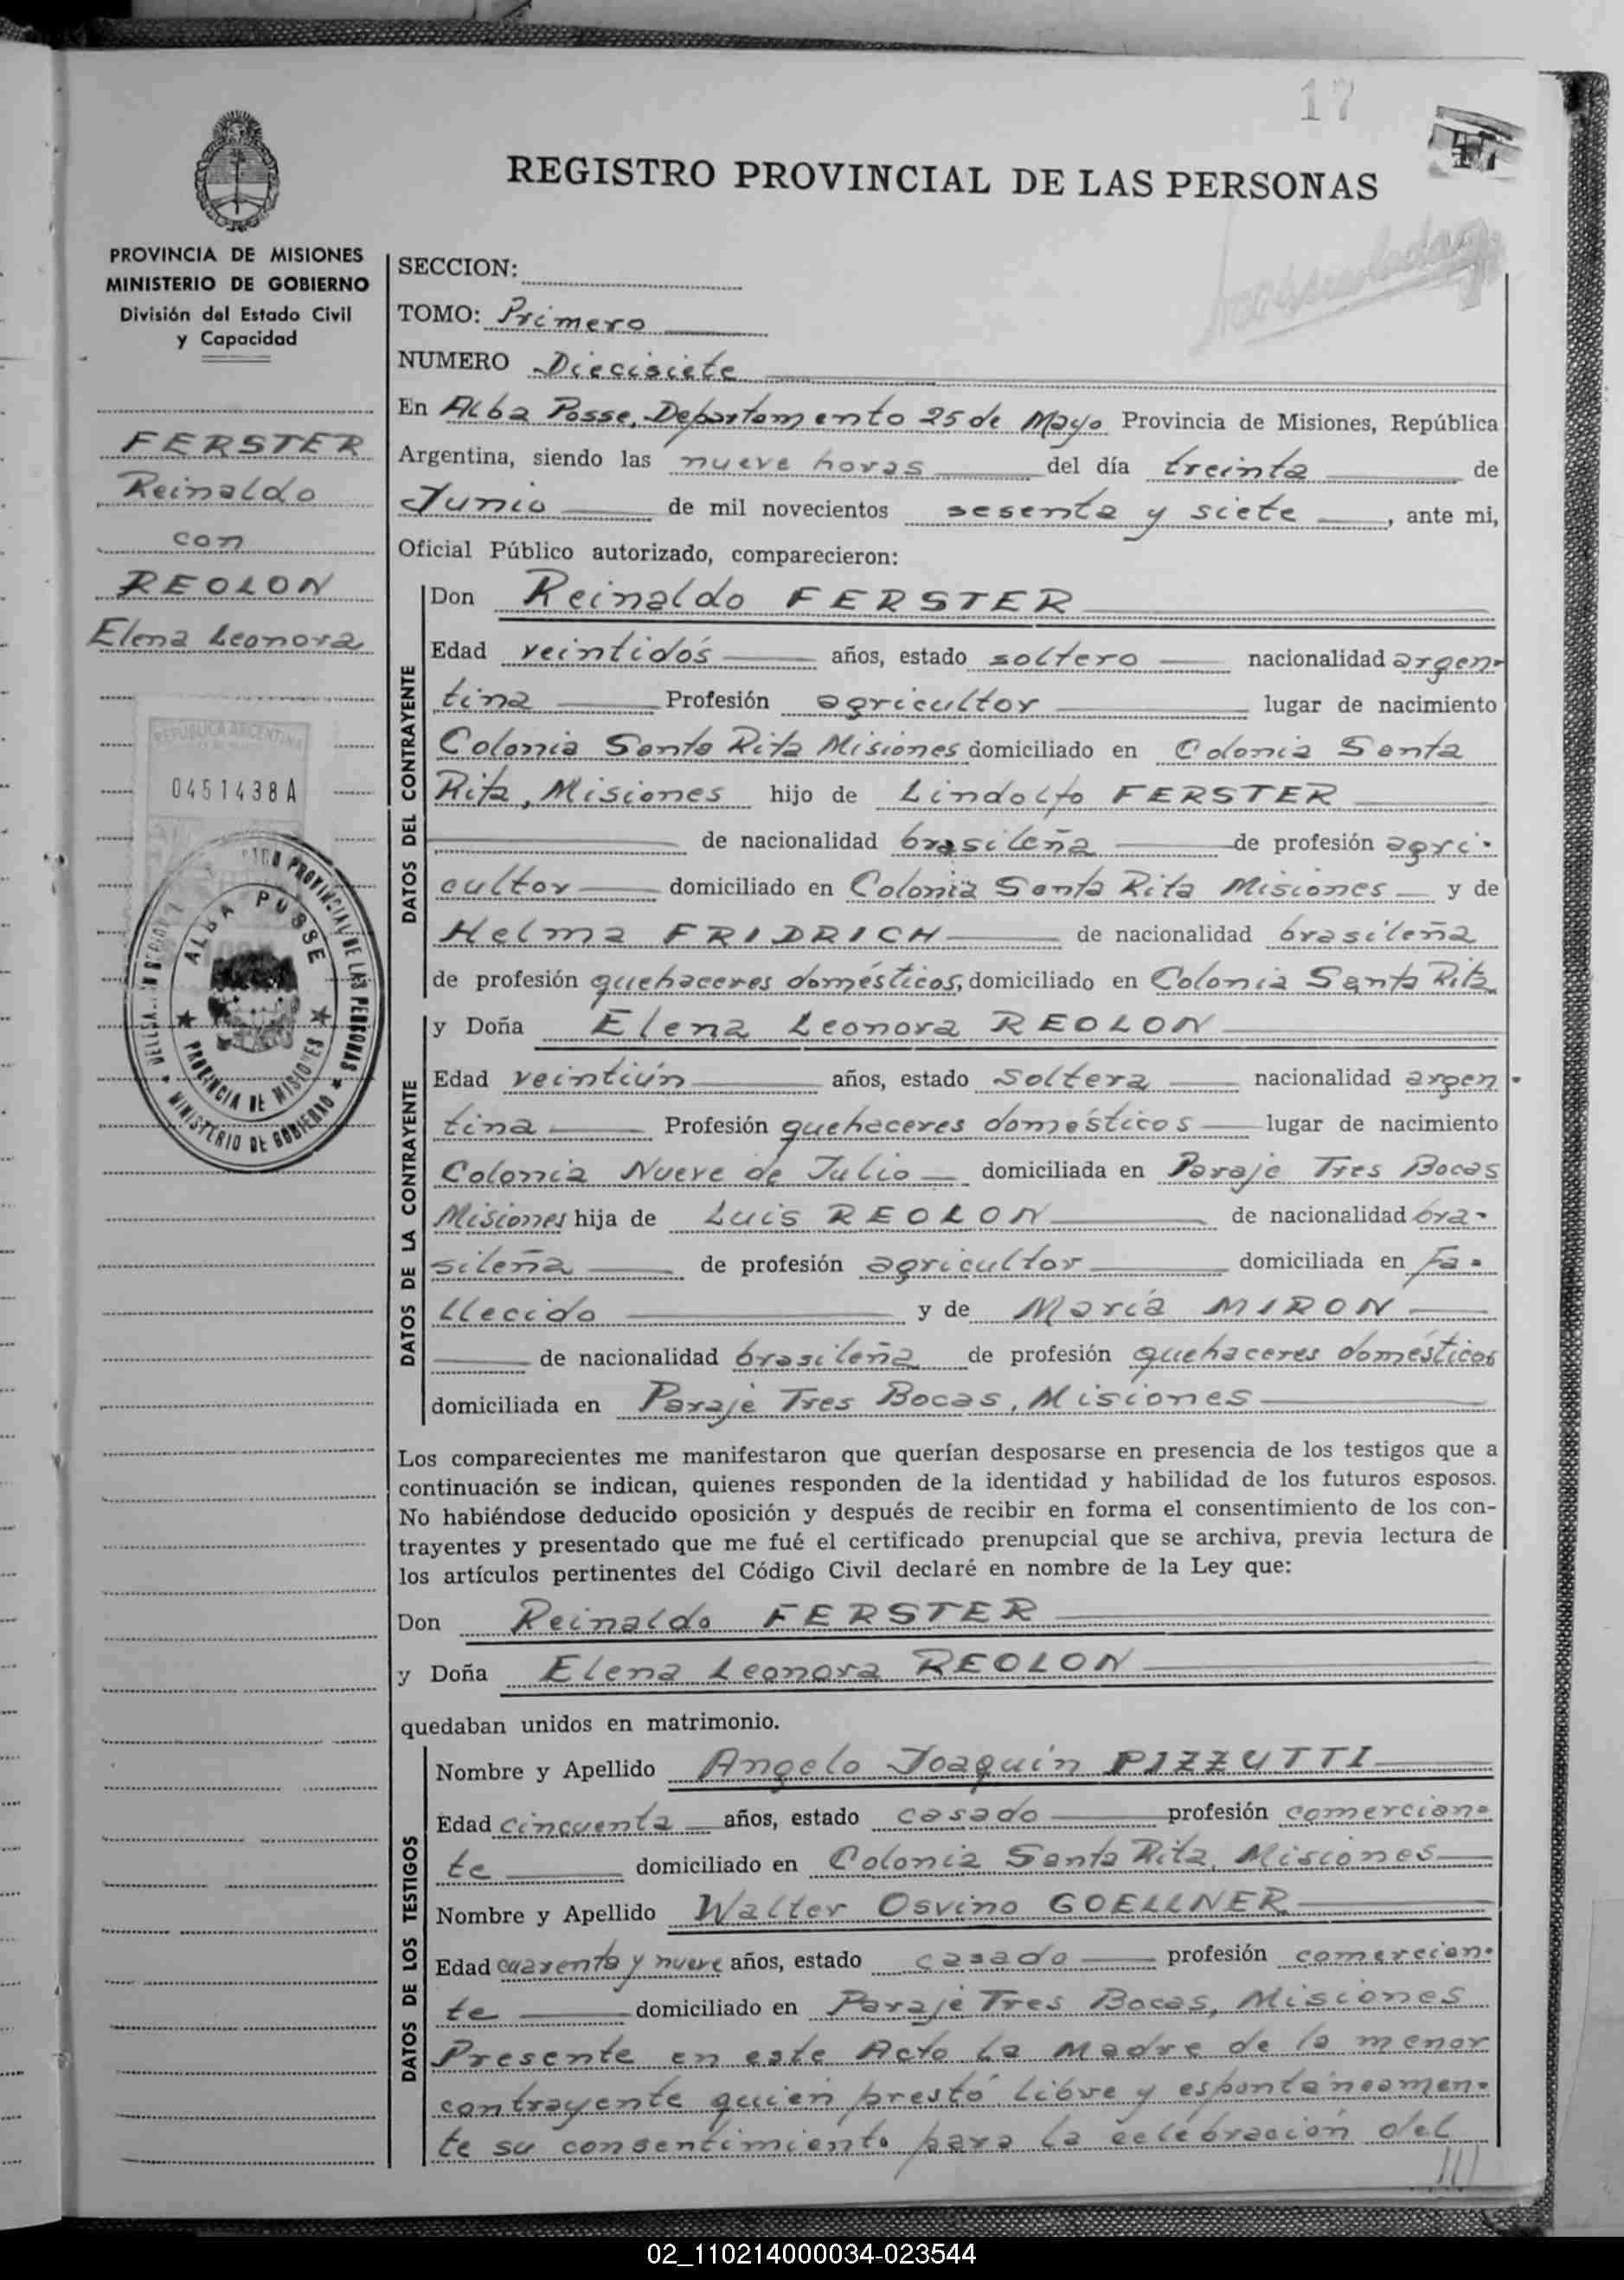 17
REGISTRO PROVINCIAL DE LAS PERSONAS
PROVINCIA DE MISIONES
MINISTERIO DE GOBIERNO
División del Estado Civil
y Capacidad
FERSTER
Reinaldo
con
REOLON
Elena Leonora
REPUBLICA ARGENTINA
0451438A
PROVINCIAL DE LAS PERSONAS
ALBA POSSE
PROVINCIA DE MISIONES
MINISTERIO DE GOBIERNO
SECCION:
TOMO: Primero
NUMERO Diecisiete
En Alba Posse, Departamento 25 de Mayo Provincia de Misiones, República
Argentina, siendo las nueve horas del día treinta de
Junio de mil novecientos sesenta y siete, ante mi,
Oficial Público autorizado, comparecieron:
DATOS DEL CONTRAYENTE
Don Reinaldo FERSTER
Edad veintidós años, estado soltero nacionalidad argen-
tina Profesión agricultor lugar de nacimiento
Colonia Santa Rita Misiones domiciliado en Colonia Santa
Rita, Misiones hijo de Lindolfo FERSTER
de nacionalidad brasileña de profesión agri-
cultor domiciliado en Colonia Santa Rita Misiones y de
Helma FRIDRICH de nacionalidad brasileña
de profesión quehaceres domésticos, domiciliado en Colonia Santa Rita
DATOS DE LA CONTRAYENTE
y Doña Elena Leonora REOLON
Edad veintiún años, estado soltera nacionalidad argen-
tina Profesión quehaceres domésticos lugar de nacimiento
Colonia Nueve de Julio domiciliada en Paraje Tres Bocas
Misiones hija de Luis REOLON de nacionalidad bra-
sileña de profesión agricultor domiciliada en Fa-
llecido y de María MIRON
de nacionalidad brasileña de profesión quehaceres domésticos
domiciliada en Paraje Tres Bocas, Misiones
Los comparecientes me manifestaron que querían desposarse en presencia de los testigos que a
continuación se indican, quienes responden de la identidad y habilidad de los futuros esposos.
No habiéndose deducido oposición y después de recibir en forma el consentimiento de los con-
trayentes y presentado que me fué el certificado prenupcial que se archiva, previa lectura de
los artículos pertinentes del Código Civil declaré en nombre de la Ley que:
Don Reinaldo FERSTER
y Doña Elena Leonora REOLON
quedaban unidos en matrimonio.
DATOS DE LOS TESTIGOS
Nombre y Apellido Angelo Joaquin PIZZUTTI
Edad cincuenta años, estado casado profesión comercian-
te domiciliado en Colonia Santa Rita, Misiones
Nombre y Apellido Walter Osvino GOELLNER
Edad cuarenta y nueve años, estado casado profesión comercian-
te domiciliado en Paraje Tres Bocas, Misiones
Presente en este Acto la Madre de la menor
contrayente quien prestó libre y espontáneamen-
te su consentimiento para la celebración del
///
02_110214000034-023544